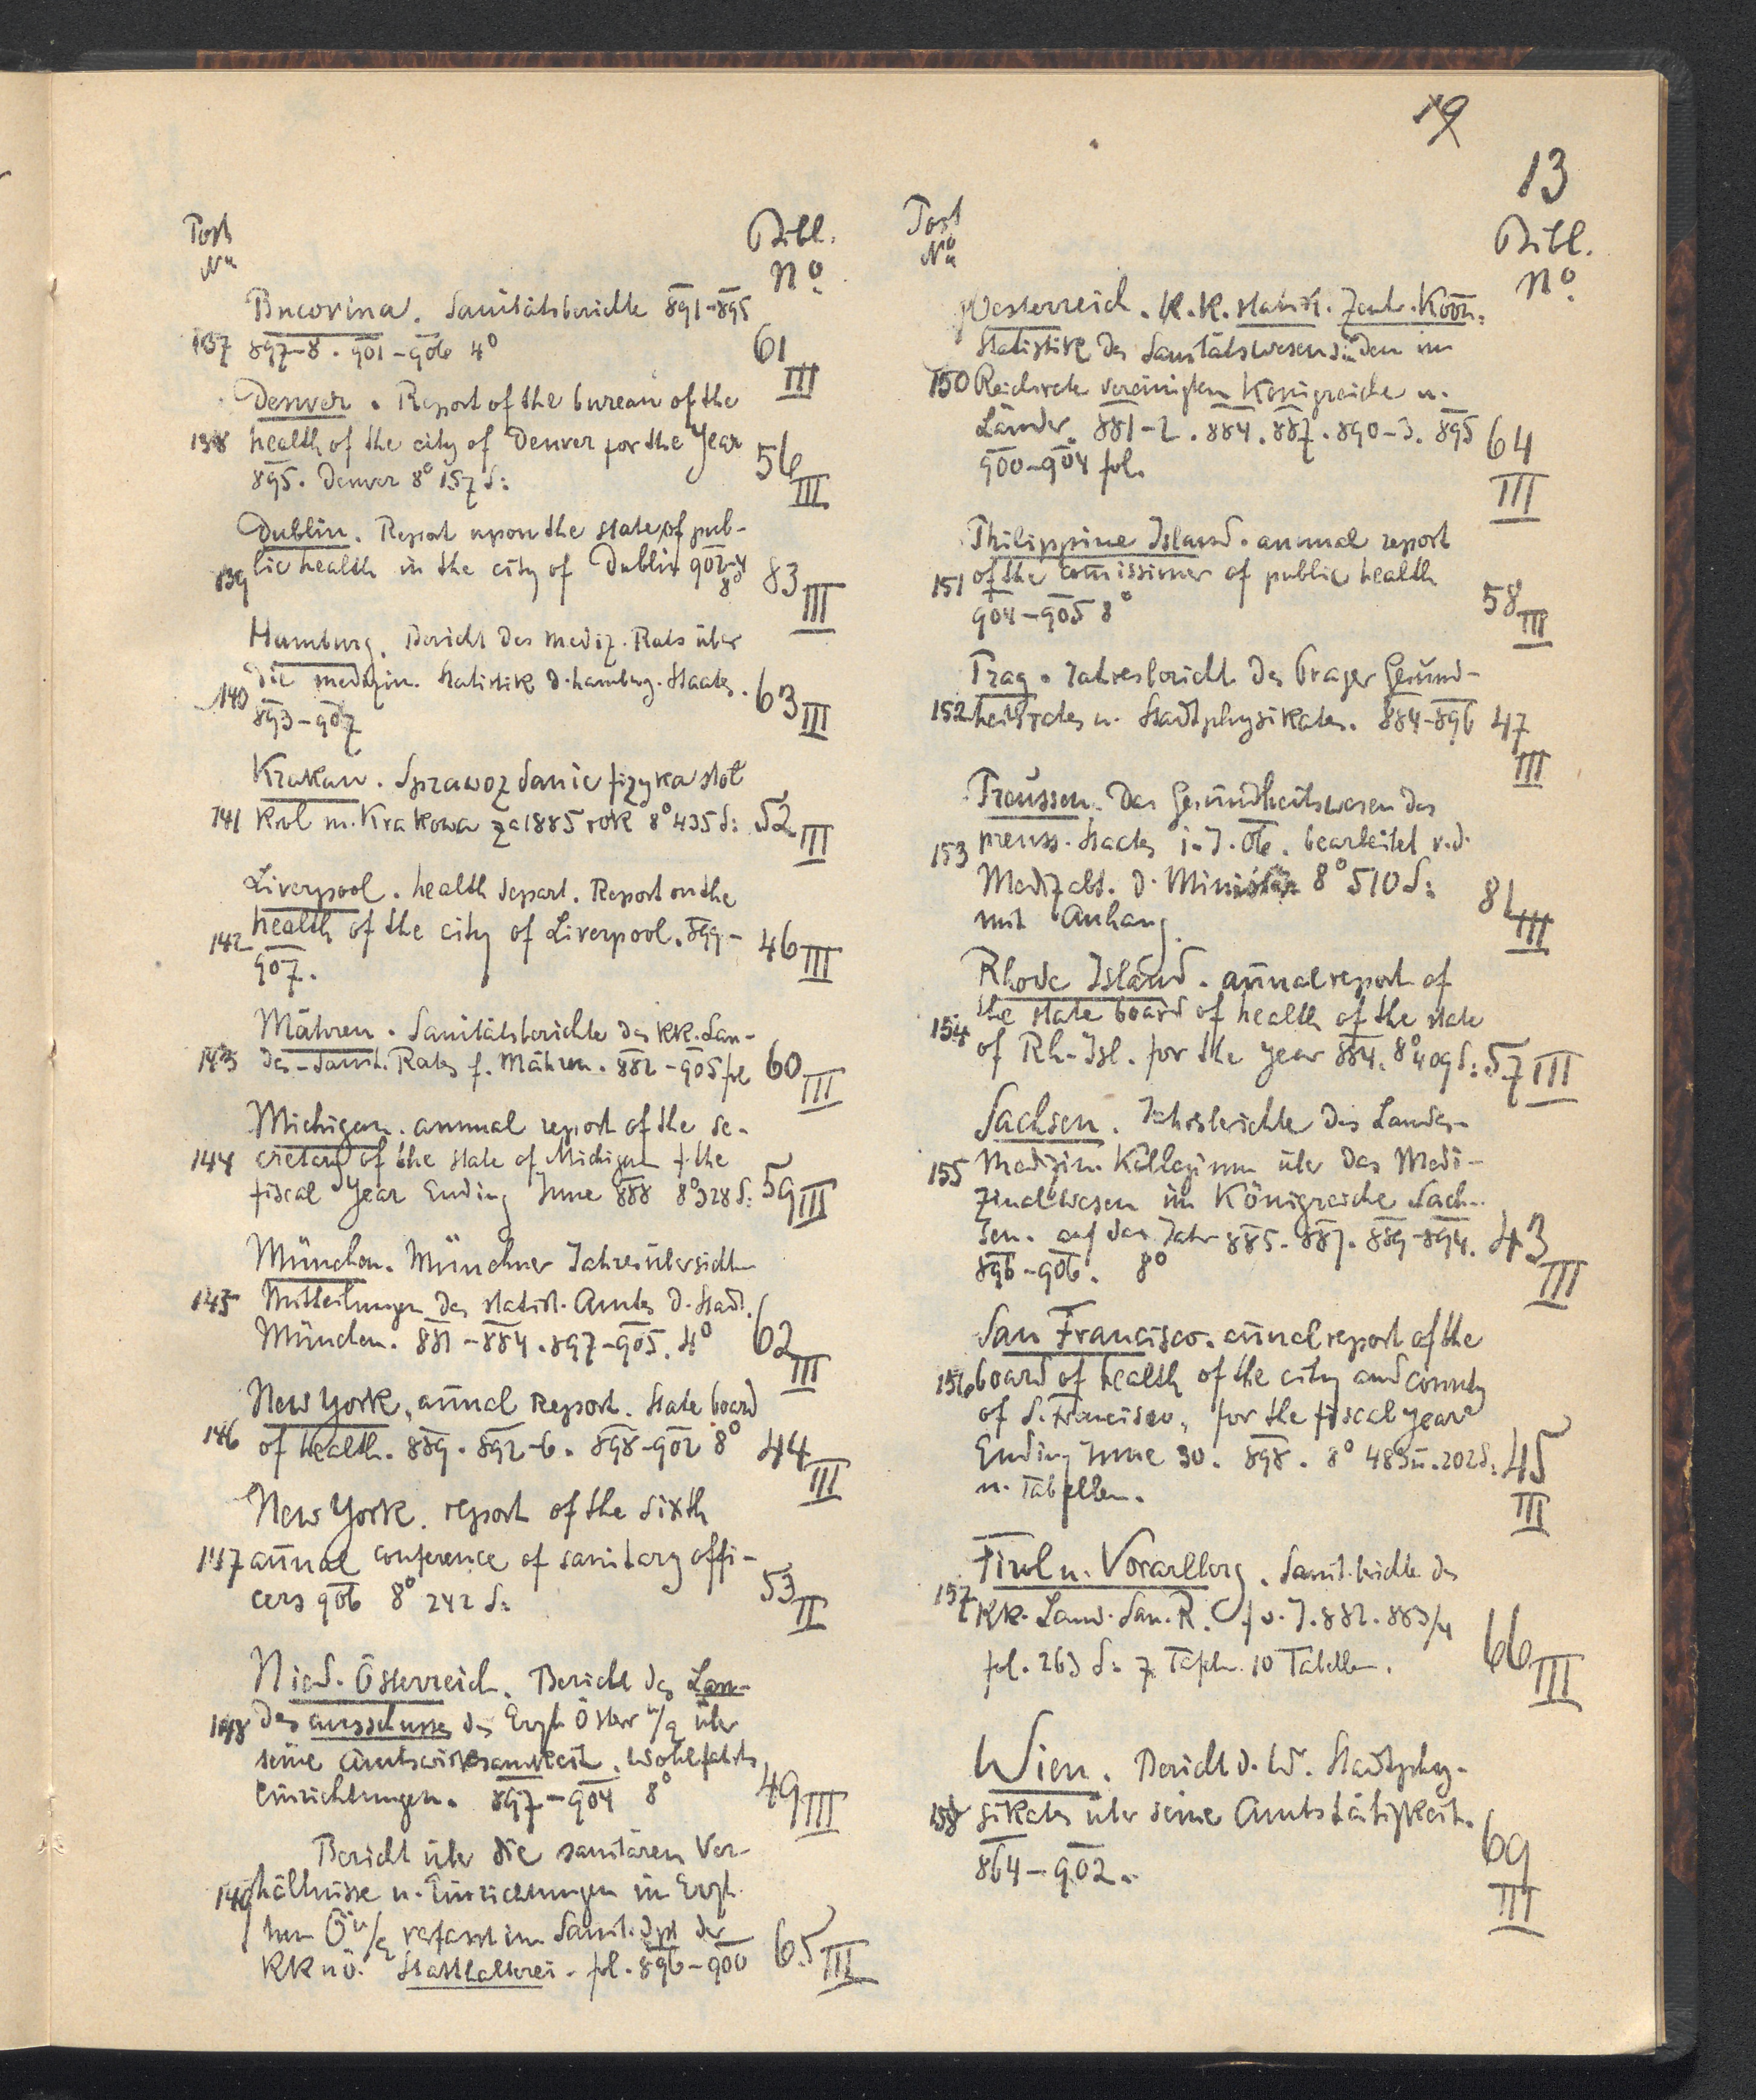 19
13
Post
No
Bibl.
No
Bucovina. Sanitätsberichte 891-895
137 897-8. 901-906 4°
61
III
Denver. Report of the bureau of the
138 health of the city of Denver for the Year
895. Denver 8° 157 S:
56
III
Dublin. Report upon the state of pub-
139 lic health in the city of Dublin 902-4
8°
83
III
Hamburg. Bericht des mediz. Rats über
140 die medizin. Statistik d. hamburg. Staates.
893-907
63
III
Krakau. Sprawozdanie fizyka stoł
141 krol m. Krakowa za 1885 rok 8° 435 S:
52
III
Liverpool. health depart. Report on the
142 health of the city of Liverpool. 899-
907.
46
III
Mähren. Sanitätsberichte des KK. Lan-
143 des-Sanit. Rates f. Mähren. 882-905 fol
60
III
Michigan. annual report of the se-
144 cretary of the State of Michigan f. the
fiscal Year Ending June 888 8° 328 S:
59
III
München. Münchner Jahresübersichten
145 Mitteilungen des statist. Amtes d. Stadt.
München. 881-884. 897-905. 4°
62
III
New York, an̄ual Report. State board
146 of health. 889. 892-6. 898-902 8°
44
III
New York. report of the Sixth
147 an̄ual conference of sanitary offi-
cers 906 8° 242 S:
53
II
Nied. Österreich. Bericht des Lan-
148 desausschusses des Erzh Österr u/e über
seine Amtswirksamkeit. Wohlfahrts
Einrichtungen. 897-904 8°
49
III
Bericht über die sanitären Ver-
149 hältnisse u. Einrichtungen in Erzh.
tum Ö u/e verfasst im Sanit. Dpt der
KK nö. Statthalterei. fol. 896-900
65
III
Post
No
Bibl.
No
Oesterreich. K.K. statist. Zentr. Kom̄.
Statistik des Sanitätswesens in den im
150 Reichsrate vereinigten Königreiche u.
Länder. 881-2. 884. 887. 890-3. 895
900-904 fol.
64
III
Philippine Island. annual report
151 of the com̄issioner of public health
904-905 8°
58
III
Prag. Jahresbericht des Prager Gesund-
152 heitsrates u. Stadtphysikates. 884-896
47
III
Preussen. Das Gesundheitswesen des
153 preuss. Staates i. J. 06. bearbeitet v. d.
Medizabt. d. Minister 8° 510 S:
mit Anhang.
81
III
Rhode Island. an̄ual report of
154 the state board of health of the state
of Rh-Isl. for the year 884. 8° 409 S:
57
III
Sachsen. Jahrsberichte des Landes-
155 Medizin. Kollegium über das Medi-
zinalwesen im Königreiche Sach-
sen. auf das Jahr 885. 887. 889-894.
896-906. 8°
43
III
San Francisco. an̄ual report of the
156 board of health of the city and county
of S. Francisco, for the fiscal year
Ending June 30. 898. 8° 483 u. 202 S:
u. Tabellen.
45
III
Tirol u. Vorarlberg. Sanit. brichte des
157 KK. Land. San. R. f v. J. 882. 883/4
fol. 263 S: 7 Tafeln. 10 Tabellen.
66
III
Wien. Bericht d. W. Stadtphy-
158 sikates über seine Amtstätigkeit.
864-902.
69
III